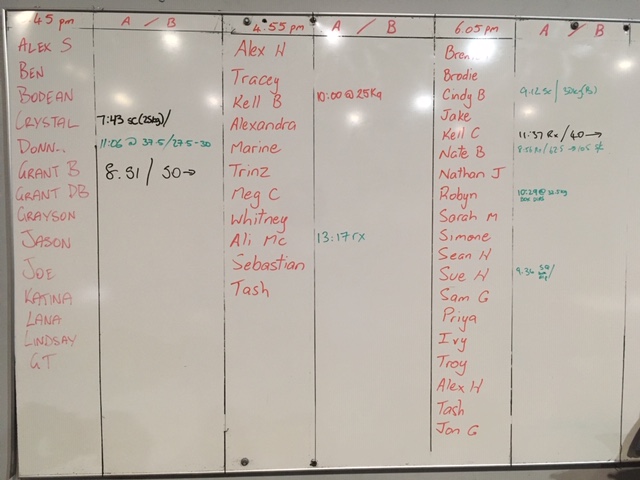 45 pm A / B 4.55pm A / B 6.05pm A / B
ALEX S
BEN
BODEAN
CRYSTAL 7:43 SC(25kg)/
DONN.. 11:06 @ 37.5/27.5-30
GRANT B 8.51 / 50→
GRANT DB
GRAYSON
JASON
JOE
KATINA
LANA
LINDSAY
GT
Alex H
Tracey
Kell B 10:00 @ 25Kg
Alexandra
Marine
Trinz
Meg C
Whitney
Ali Mc 13:17 rx
Sebastian
Tash
Bren
Brodie
Cindy B 9:12 Sc /
Jake
Kell C 11:37 Rx / 40→
Nate B
Nathan J
Robyn 10:29 @
Sarah M
Simone
Sean H
Sue H 9:36
Sam G
Priya
Ivy
Troy
Alex H
Tash
Jon G